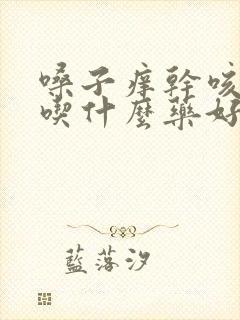 嗓子痒幹咳
喫什麼藥好
藍落汐